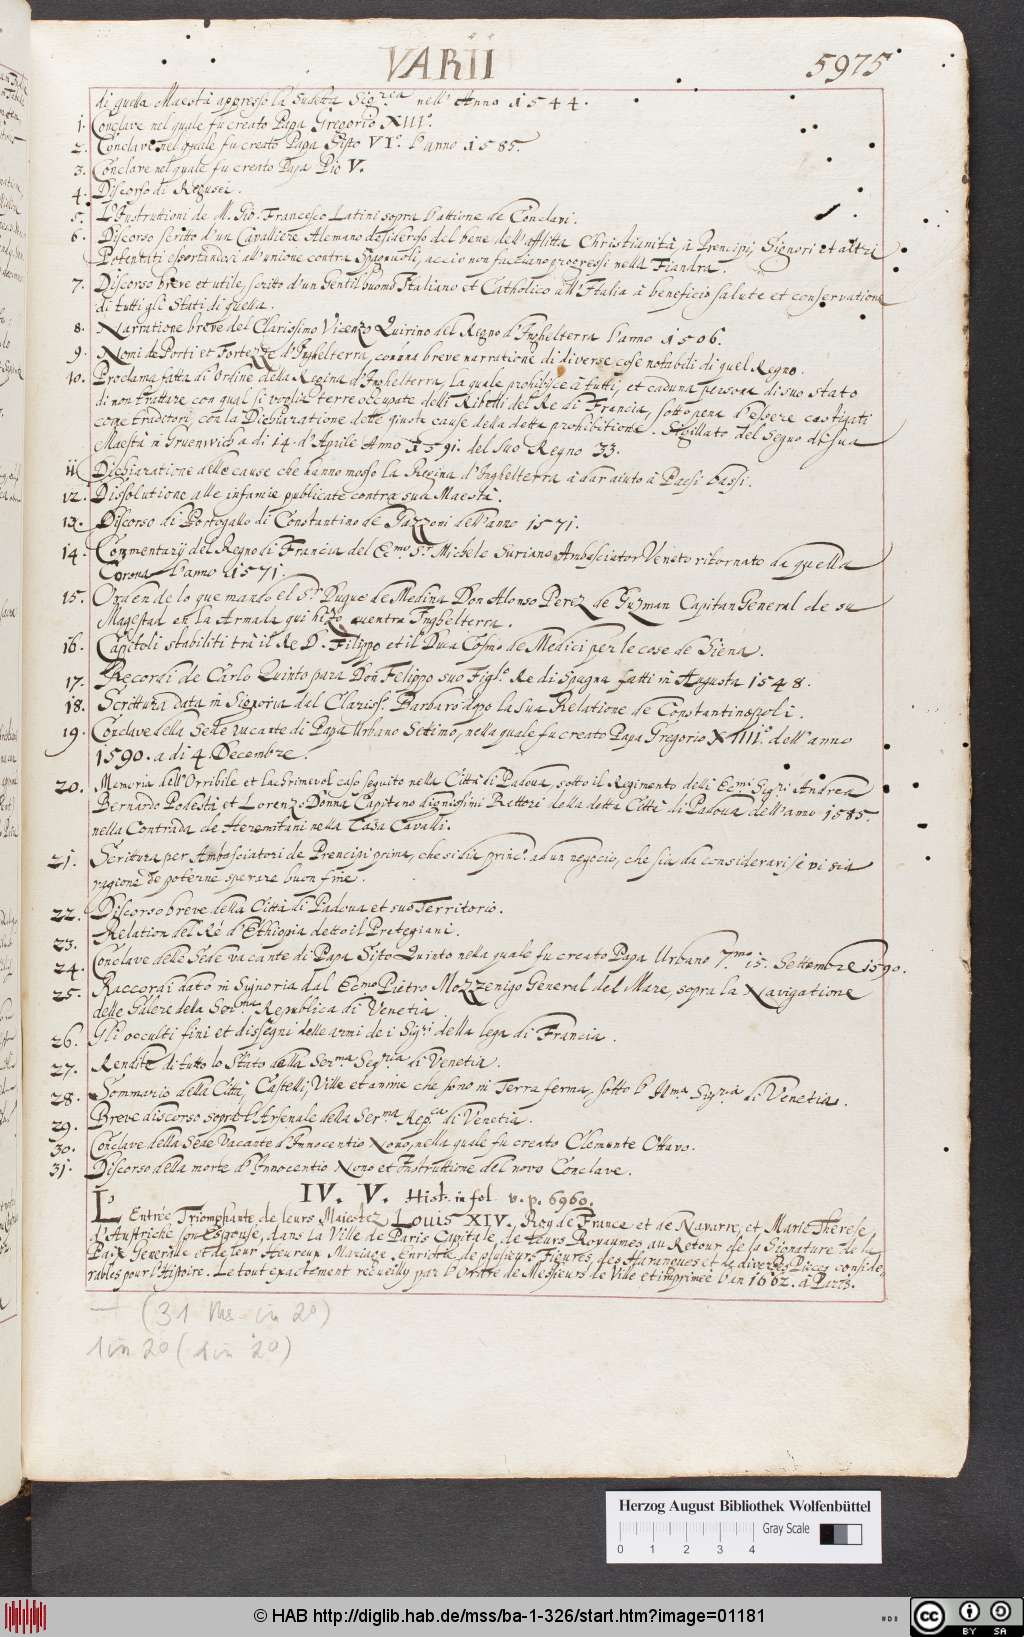 VARII
5975
di quella Maestà appresso la sudetta Sig.rea nell' Anno 1544.
1. Conclave nel quale fu creato Papa Gregorio XIII.o
2. Conclave nel quale fu creato Papa Sisto VI.o l'anno 1585.
3. Conclave nel quale fu creato Papa Pio V.
4. Discorso di Ragusei.
5. L'Instruttioni de M. Gio. Francesco Latini sopra l'attione de Conclavi.
6. Discorso scritto d'un Cavalliere Alemano desideroso del bene dell'afflitta Christianità à Prencipi, Signori et altri
Potentati essortandoli all'unione contra Spagnuoli, acciò non facciano progressi nella Fiandra.
7. Discorso breve et utile, scritto d'un Gentilhuomo Italiano et Catholico all'Italia à beneficio salute et conservatione
di tutti gli stati di quella.
8. Narratione breve del Clarissimo Vicenzo Quirino del Regno d'Inghelterra l'anno 1506.
9. Nomi de Porti et Fortezze d'Inghelterra, con una breve narratione di diverse cose notabili di quel Regno.
10. Proclama fatta di ordine della Regina d'Inghelterra, la quale prohibisce à tutti, et caduna persona di suo stato
di non trattare con qual si voglia terre occupate delli Ribelli del Re di Francia, sotto pena d'essere castigati
come traditori, con la Dichiaratione delle giuste cause della detta prohibitione. Sigillato del segno di sua
Maestà in Gruenwich a di 14. d'Aprile Anno 1591. del suo Regno 33.
11. Dichiaratione delle cause che hanno mosso la Regina d'Inghelterra à dar aiuto à Paesi bassi.
12. Dissolutione alle infamie publicate contra sua Maestà.
13. Discorso di Portogallo di Constantino de Gazzoni dell'anno 1571.
14. Commentarij del Regno di Francia del Ec.mo S.r Michele Suriano Ambasciator Veneto ritornato da quella
Corona l'anno 1571.
15. Orden de lo que mandò el S.r Duque de Medina Don Alonso Perez de Guzman Capitan General de su
Magestad en la Armada qui hizo cuentra Inghelterra.
16. Capitoli stabiliti trà il Re D. Filippo et il Duca Cosmo de Medici per le cose de Siena.
17. Recordi de Carlo Quinto para Don Felippo suo Figl.o Re di Spagna fatti in Augusta 1548.
18. Scrittura data in Signoria dal Clariss.o Barbaro dopo la sua Relatione de Constantinopoli.
19. Conclave della Sede vacante di Papa Urbano Settimo, nella quale fu creato Papa Gregorio XIIII.o dell'anno
1590. a di 4. Decembre.
20. Memoria dell'Orribile et lachrimevol caso seguito nella Città di Padova, sotto il Regimento delli Ec.mi Sig.ri Andrea
Bernardo Podestà et Lorenzo Donna Capitano dignissimi Rettori della detta Città di Padova dell'anno 1585
nella Contrada de Heremitani nella Casa Cavalli.
21. Scrittura per Ambasciatori de Prencipi prima, che si dia princ.o ad un negocio, che sia da considerarvi se vi sia
ragione de poterne sperare buon fine.
22. Discorso breve della Città di Padova et suo Territorio.
23. Relation del Ré d'Ethiopia detto il Pretegiani.
24. Conclave delle Sede vacante di Papa Sisto Quinto nella quale fu creato Papa Urbano 7.mo 15. Settembre 1590.
25. Raccordi dato in Signoria dal Ec.mo Pietro Mozzenigo General del Mare, sopra la Navigatione
delle Galere dela Ser.ma Republica di Venetia.
26. Gli occulti fini et dissegni delle armi de i Sig.ri della lega di Francia.
27. Rendite di tutto lo Stato della Ser.ma Seg.ria di Venetia.
28. Sommario della Città, Castelli, Ville et anime che sono in Terra ferma, sotto l' Ill.ma Sig.ria di Venetia.
29. Breve discorso sopra l'Arsenale della Ser.ma Rep.ca di Venetia.
30. Conclave della Sede Vacante d'Innocentio Nono, nella quale fu creato Clemente Ottavo.
31. Discorso della morte d'Innocentio Nono et Instruttione del novo Conclave.
IV. V. Hist. in fol v. p. 6960.
L'Entrée Triomphante de leurs Maiestez Louis XIV, Roy de France et de Navarre, et Marie Therese
d'Austriche son Espouse, dans la Ville de Paris Capitale de leurs Royaumes au Retour de la Signature de la
Paix Generalle et de leur Heureux Mariage. Enrichie de plusieurs Figures, des Harangues et de diverses Pieces conside-
rables pour l'Histoire. Le tout exactement recueilly par l'Ordre de Messieurs de Ville et imprimée l'an 1662. à Paris.
(31 in 2°)
1 in 2° (1 in 2°)
Herzog August Bibliothek Wolfenbüttel
Gray Scale
0 1 2 3 4
© HAB http://diglib.hab.de/mss/ba-1-326/start.htm?image=01181
cc BY SA